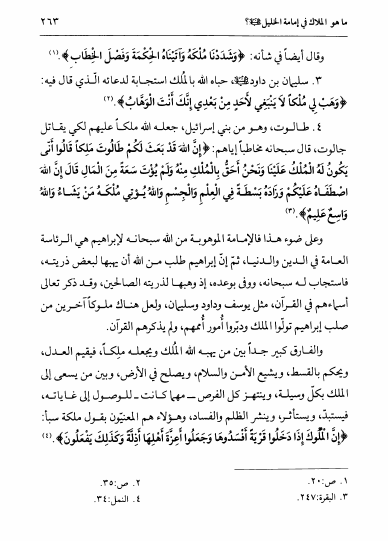 ما هو الملاك في إمامة الخليل ﷺ؟ ٢٦٣
وقال أيضاً في شأنه: ﴿وَشَدَدْنَا مُلْكَهُ وَآتَيْنَاهُ الْحِكْمَةَ وَفَصْلَ الْخِطَابِ﴾.(١)
٣. سليمان بن داود ﷺ، حباه الله بالمُلك استجابة لدعائه الّذي قال فيه:
﴿وَهَبْ لِي مُلْكاً لاَ يَنْبَغِي لأَحَدٍ مِنْ بَعْدِي إِنَّكَ أَنْتَ الْوَهَّابُ﴾.(٢)
٤. طالوت، وهو من بني إسرائيل، جعله الله ملكاً عليهم لكي يقاتل
جالوت، قال سبحانه مخاطباً إياهم: ﴿إِنَّ اللهَ قَدْ بَعَثَ لَكُمْ طَالُوتَ مَلِكاً قَالُوا أَنَّى
يَكُونُ لَهُ الْمُلْكُ عَلَيْنَا وَنَحْنُ أَحَقُّ بِالْمُلْكِ مِنْهُ وَلَمْ يُؤْتَ سَعَةً مِنَ الْمَالِ قَالَ إِنَّ اللهَ
اصْطَفَاهُ عَلَيْكُمْ وَزَادَهُ بَسْطَةً فِي الْعِلْمِ وَالْجِسْمِ وَاللهُ يُؤْتِي مُلْكَهُ مَنْ يَشَاءُ وَاللهُ
وَاسِعٌ عَلِيمٌ﴾.(٣)
وعلى ضوء هذا فالإمامة الموهوبة من الله سبحانه لإبراهيم هي الرئاسة
العامة في الدين والدنيا، ثمّ إنّ إبراهيم طلب من الله أن يهبها لبعض ذريته،
فاستجاب لـه سبحانه، ووفى بوعده، إذ وهبها لذريته الصالحين، وقد ذكر تعالى
أسماءهم في القرآن، مثل يوسف وداود وسليمان، ولعل هناك ملوكاً آخرين من
صلب إبراهيم تولّوا الملك ودبّروا أُمور أُممهم، ولم يذكرهم القرآن.
والفارق كبير جداً بين من يهبه الله المُلك ويجعله ملِكاً، فيقيم العدل،
ويحكم بالقسط، ويشيع الأمـن والسلام، ويصلح في الأرض، وبين من يسعى إلى
الملك بكلّ وسيلـة، وينتهـز كل الفرص ــ مهما كانت ــ للوصول إلى غاياته،
فيستبدّ، ويستأثـر، وينشر الظلم والفساد، وهـؤلاء هم المعنيّون بقول ملكة سبأ:
﴿إِنَّ الْمُلُوكَ إِذَا دَخَلُوا قَرْيَةً أَفْسَدُوهَا وَجَعَلُوا أَعِزَّةَ أَهْلِهَا أَذِلَّةً وَكَذَلِكَ يَفْعَلُونَ﴾.(٤)
١. ص:٢٠. ٢. ص:٣٥.
٣. البقرة:٢٤٧. ٤. النمل:٣٤.